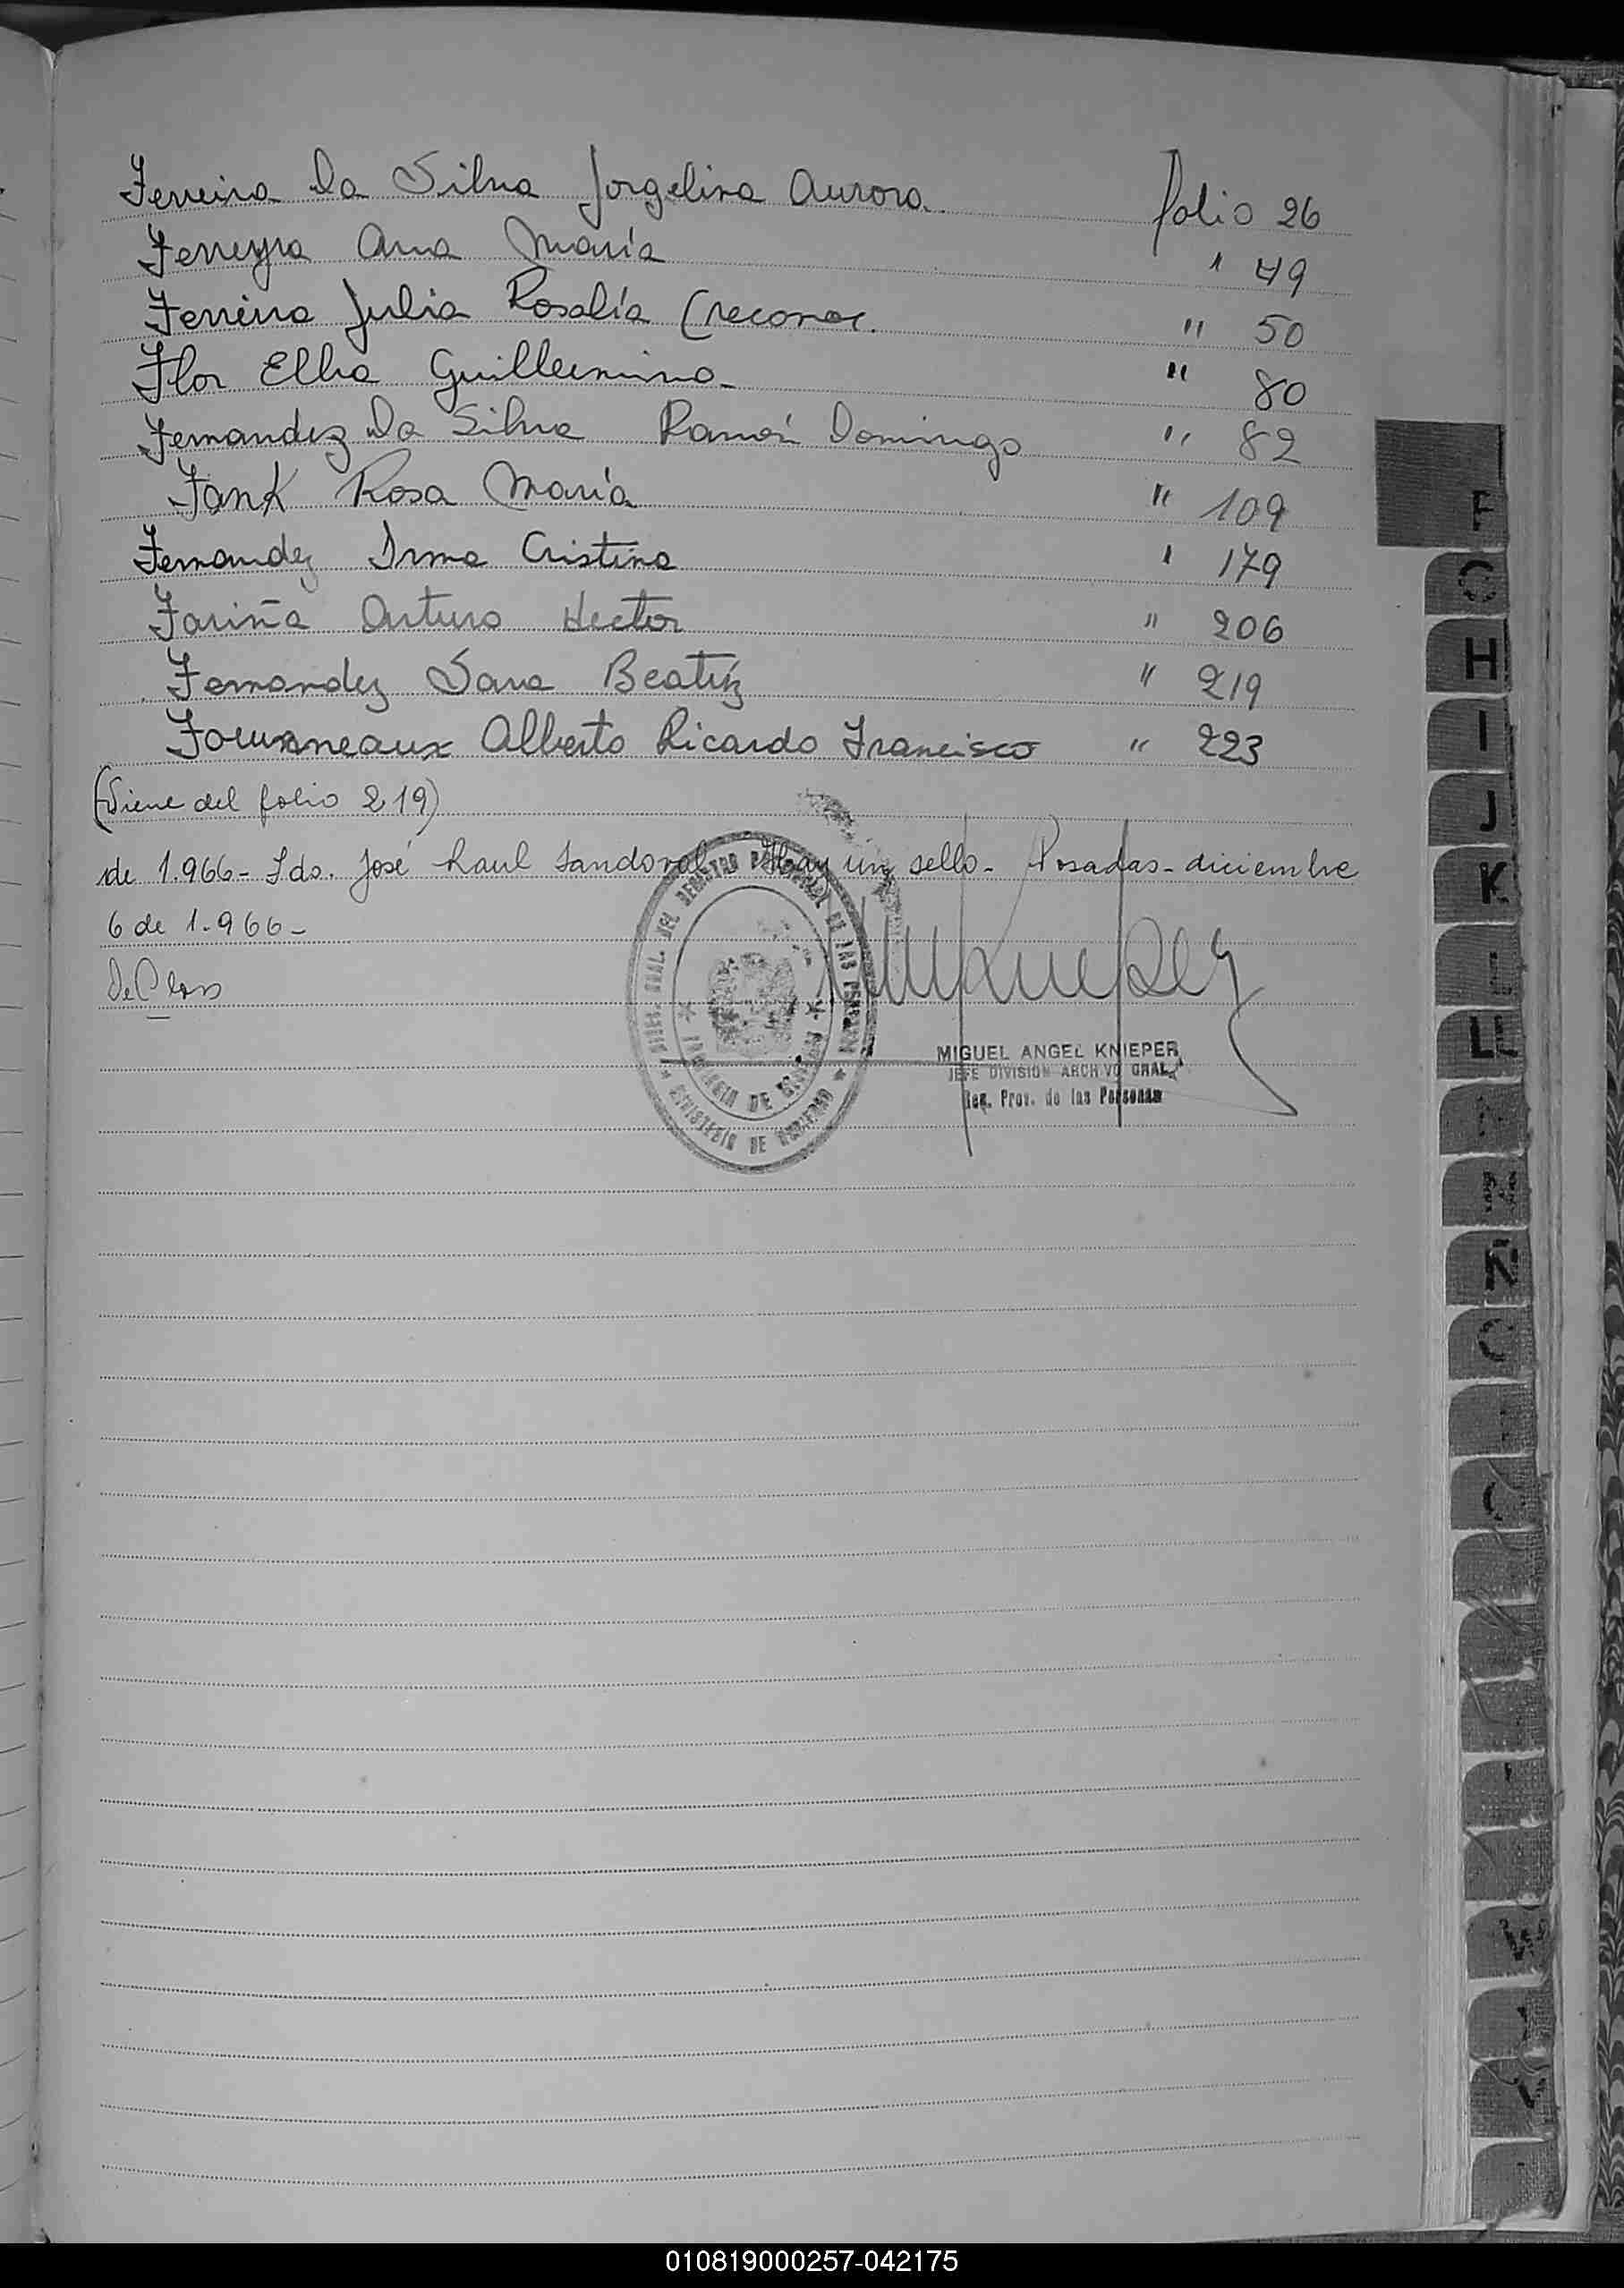 Ferreira Da Silva Jorgelina Aurora. folio 26
Ferreyra Ana María " 49
Ferreira Julia Rosalía (reconoc. " 50
Flor Elba Guillermina- " 80
Fernandez Da Silva Ramón Domingo " 82
Fank Rosa María " 109
Fernandez Irma Cristina " 179
Fariña Arturo Hector " 206
Fernandez Sara Beatriz " 219
Alberto Ricardo Francisco " 223
(Viene del folio 219)
de 1.966- Fdo. José Raul Sandoval. Hay un sello- Posadas- diciembre
6 de 1.966-
MIGUEL ANGEL KNIEPER
JEFE DIVISION ARCHIVO GRAL.
Reg. Prov. de las Personas
DIREC. GRAL. DEL REGISTRO PROVINCIAL DE LAS PERSONAS
MINISTERIO DE GOBIERNO
PROVINCIA DE MISIONES
F
H
I
J
K
L
Ñ
010819000257-042175